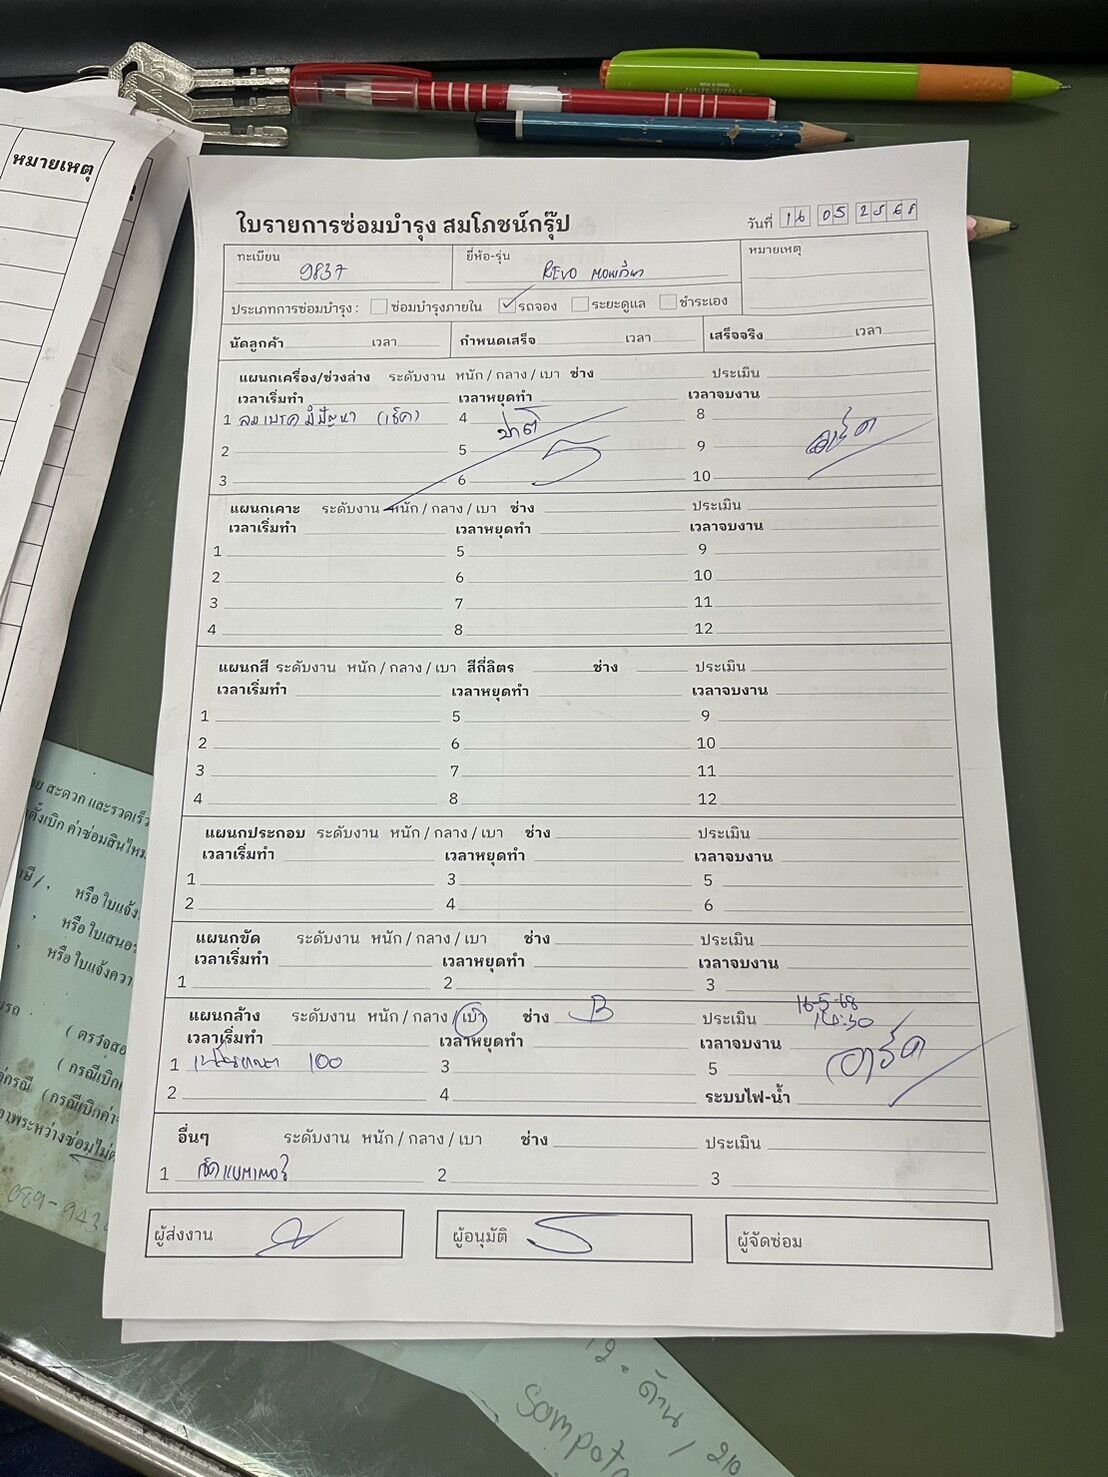 หมายเหตุ
ใบรายการซ่อมบำรุง สมโภชน์กรุ๊ป
วันที่ 16 05 2568
ทะเบียน 9837 ยี่ห้อ-รุ่น REVO หมายเหตุ
ประเภทการซ่อมบำรุง : ซ่อมบำรุงภายใน รถจอง ระยะดูแล ชำระเอง
นัดลูกค้า เวลา กำหนดเสร็จ เวลา เสร็จจริง เวลา
แผนกเครื่อง/ช่วงล่าง ระดับงาน หนัก / กลาง / เบา ช่าง ประเมิน
เวลาเริ่มทำ เวลาหยุดทำ เวลาจบงาน
1 ลมเบรคมีปัญหา (เช็ค) 4 ปกติ 8
2 5 9
3 6 10
แผนกเคาะ ระดับงาน หนัก / กลาง / เบา ช่าง ประเมิน
เวลาเริ่มทำ เวลาหยุดทำ เวลาจบงาน
1 5 9
2 6 10
3 7 11
4 8 12
แผนกสี ระดับงาน หนัก / กลาง / เบา สีกี่ลิตร ช่าง ประเมิน
เวลาเริ่มทำ เวลาหยุดทำ เวลาจบงาน
1 5 9
2 6 10
3 7 11
4 8 12
แผนกประกอบ ระดับงาน หนัก / กลาง / เบา ช่าง ประเมิน
เวลาเริ่มทำ เวลาหยุดทำ เวลาจบงาน
1 3 5
2 4 6
แผนกขัด ระดับงาน หนัก / กลาง / เบา ช่าง ประเมิน
เวลาเริ่มทำ เวลาหยุดทำ เวลาจบงาน
1 2 3
แผนกล้าง ระดับงาน หนัก / กลาง / เบา ช่าง B ประเมิน 16-5-68 14:30
เวลาเริ่มทำ เวลาหยุดทำ เวลาจบงาน
1 100 3 5
2 4 ระบบไฟ-น้ำ
อื่นๆ ระดับงาน หนัก / กลาง / เบา ช่าง ประเมิน
1 เช็คแบตเตอรี่ 2 3
ผู้ส่งงาน ผู้อนุมัติ ผู้จัดซ่อม
สะดวก และรวดเร็ว
ตั้งเบิก ค่าซ่อมสินไหม
หรือ ใบแจ้ง
หรือ ใบเสนอ
หรือ ใบแจ้งความ
( กรณีเบิก
(กรณีเบิกค่า
ระหว่างซ่อมไม่